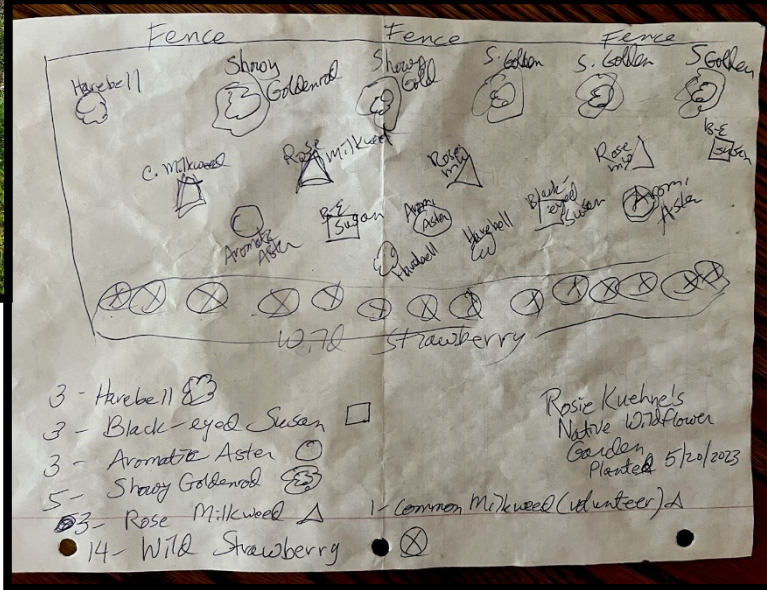 Fence Fence Fence
Harebell
Showy Goldenrod
Showy Gold
S. Golden
S. Golden
S Golden
B-E Susan
C. Milkweed
Rose Milkweed
Rose milk
Rose milk
Aromatic Aster
B-E Susan
Arom. Aster
Harebell
Harebell
Black-eyed Susan
Arom. Aster
Wild Strawberry
3 - Harebell
3 - Black-eyed Susan
3 - Aromatic Aster
5 - Showy Goldenrod
3 - Rose Milkweed
1 - Common Milkweed (volunteer)
14 - Wild Strawberry
Rosie Kuehne's
Native Wildflower
Garden
Planted 5/20/2023